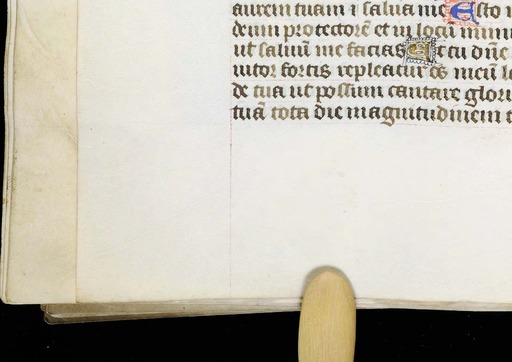 aurem tuam ⁊ salva me Esto
deum protectorē et in locū muni
ut salvū me facias Et tu dn̄e
iutor fortis repleatur os meū l
de tua ut possum cantare glori
tuā tota die magnitudinem t